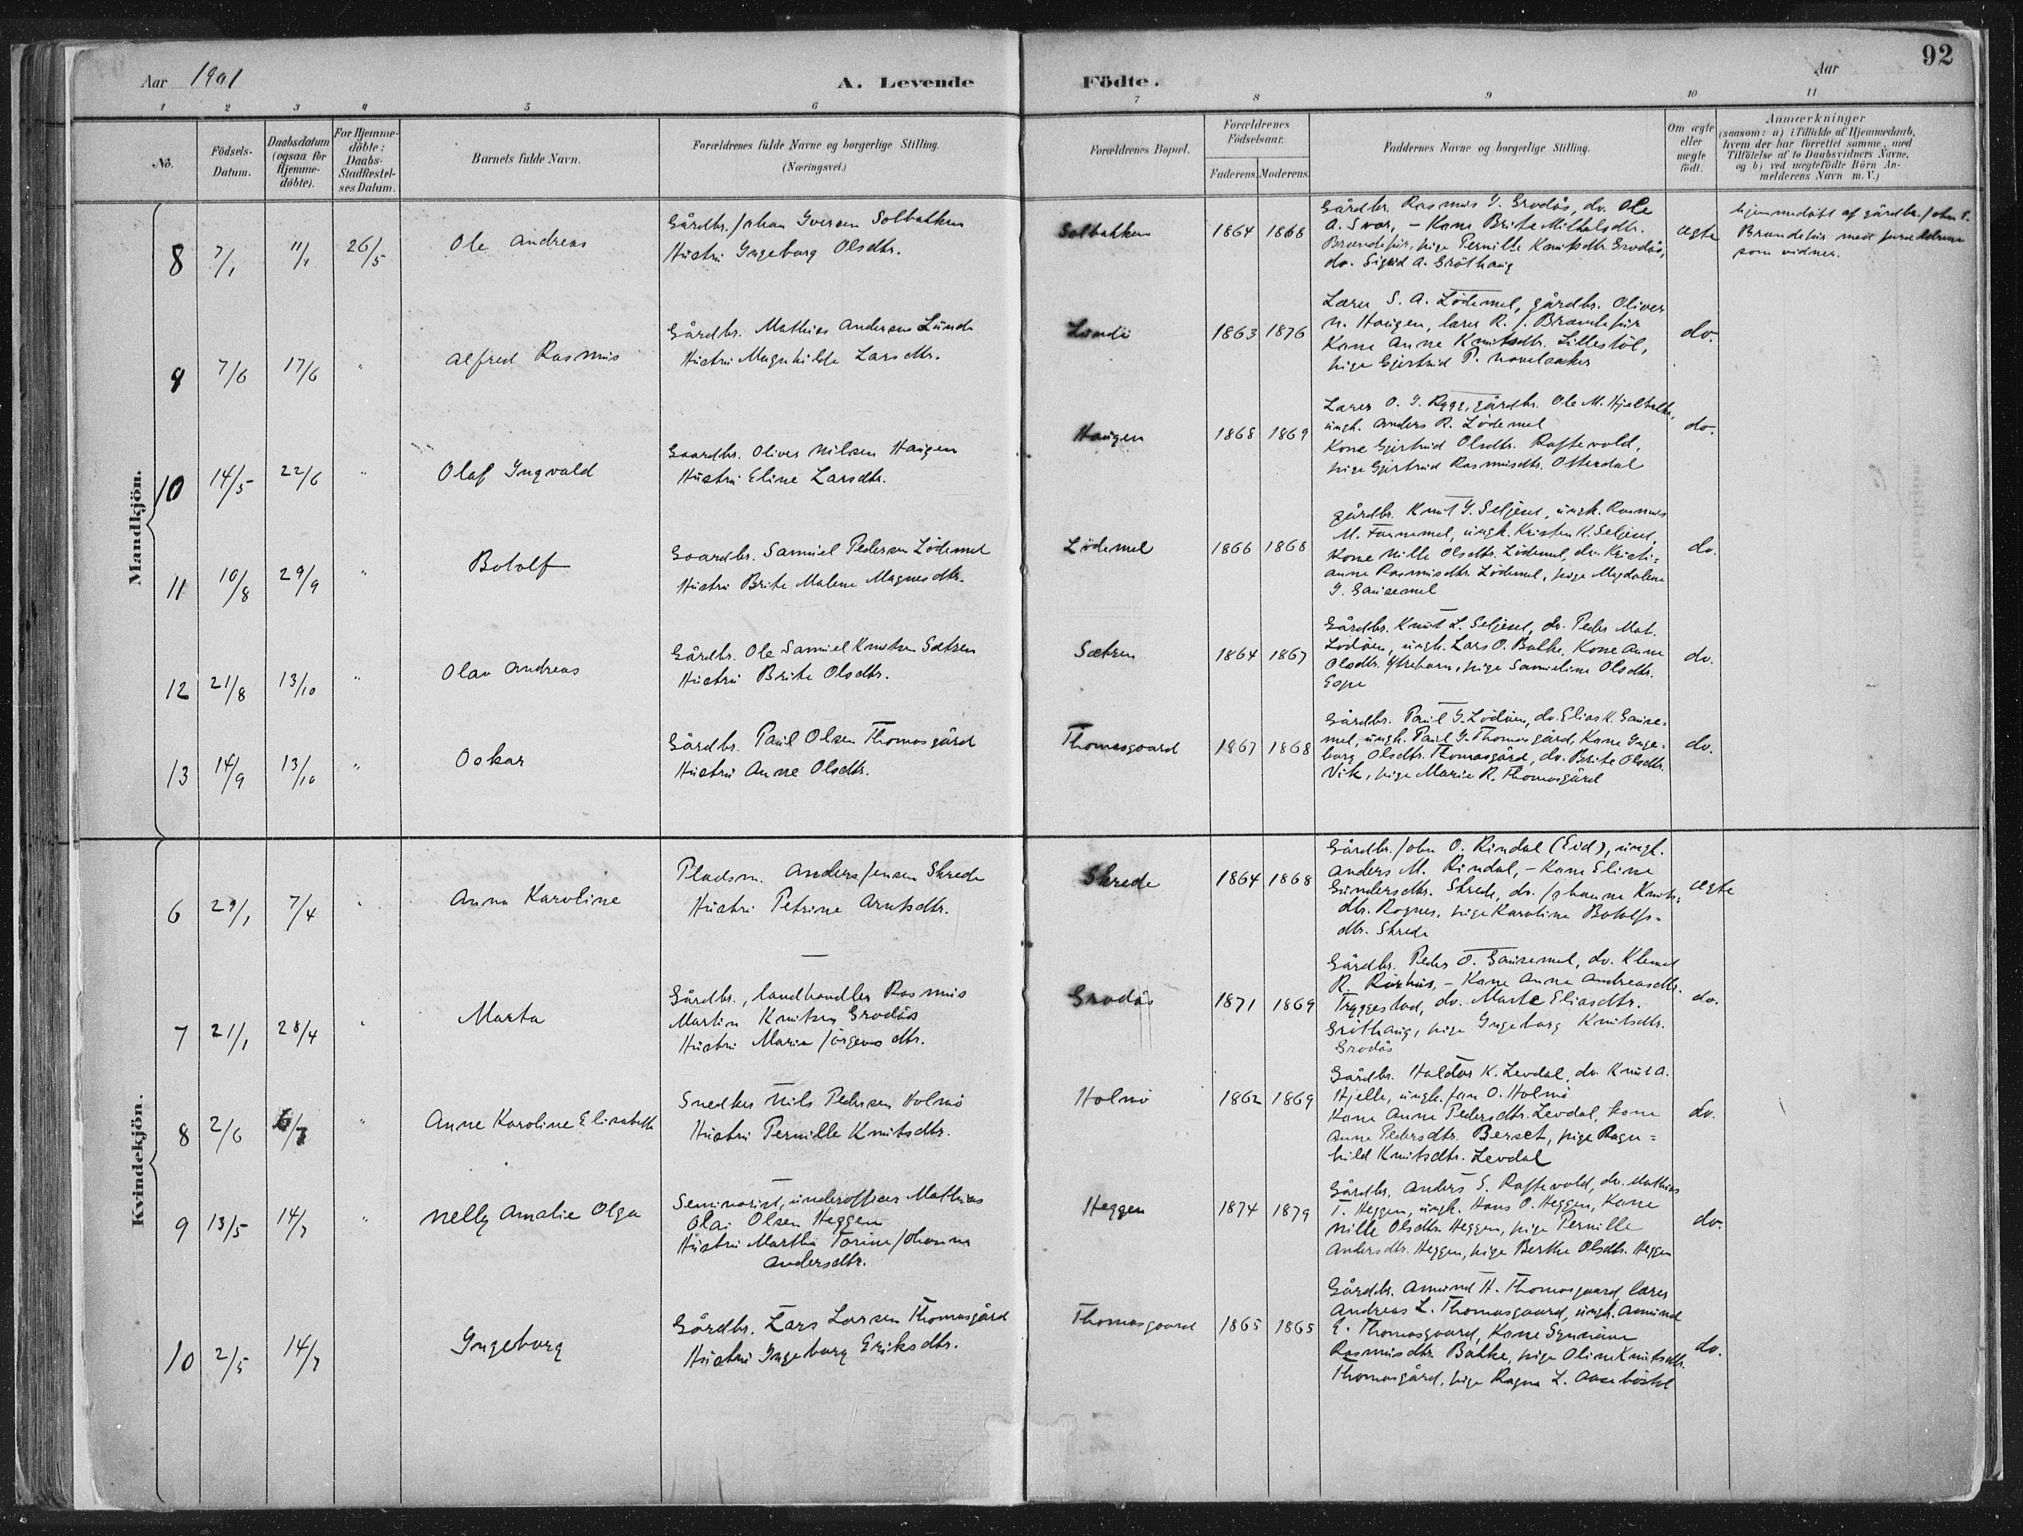 92
Aar 1901 A. Levende Födte. Aar
1 2 3 4 5 6 7 8 9 10 11
Nô. Födsels-Datum. Daabsdatum (ogsaa for Hjemme-döbte). For Hjemme-döbte: Daabs-Stadfæstel-ses Datum. Barnets fulde Navn. Forældrenes fulde Navne og borgerlige Stilling. (Næringsvei.) Forældrenes Bopæl. Forældrenes Födselsaar. Faderens Moderens Faddernes Navne og borgerlige Stilling. Om ægte eller uægte födt. Anmærkninger (saasom: a) i Tilfælde af Hjemmedaab, hvem der har forrettet samme, med Tilföielse af to Daabsvidners Navne, og b) ved uægtefödte Börn An-melderens Navn m. V.)
Mandkjön.
8 7/1 11/1 26/5 Ole Andreas
Gårdbr. Johan Iversen Solbakken
Hustru Ingeborg Olsdtr.
Solbakken 1864 1868
Gårdbr. Rasmus I. Grodås, do. Ole
A. Svor, – Kone Brite Mikkelsdtr.
Brændefur, pige Pernille Knutsdtr. Grodås,
do. Sigrid A. Gröthaug
ægte
hjemmedöbt af gårdbr. John
Brændefur med forældrene
som vidner.
9 7/6 17/6 " Alfred Rasmus
Gårdbr. Mathias Andersen Lunde
Hustru Magnhilde Larsdtr.
Lunde 1863 1876
Lærer S. A. Lödemel, gårdbr. Oliver
N. Haugen, lærer R. J. Brændefur
Kone Anne Knutsdtr. Lillestöl,
pige Gjertrud P.
do.
10 14/5 22/6 " Olaf Ingvald
Gaardbr. Oliver Nilsen Haugen
Hustru Eline Larsdtr.
Haugen 1868 1869
Lærer O. I. Rygg, gårdbr. Ole M. Hjelbakke,
ungk. Anders R. Lödemel
Kone Gjertrud Olsdtr. Raftevold,
pige Gjertrud Rasmusdtr. Otterdal
do.
11 10/8 29/9 " Botolf
Gaardbr. Samuel Pedersen Lödemel
Hustru Brite Malene Magnesdtr.
Lödemel 1866 1868
gårdbr. Knut I. Seljeset, ungk. Rasmus
M. Fannemel, ungk. Kristen K. Seljeset,
Kone Nille Olsdtr. Lödemel, do. Kristi-
anne Rasmusdtr. Lödemel, pige Magdalene
I. Gausemel
do.
12 21/8 13/10 " Olav Andreas
Gårdbr. Ole Samuel Knutsen Sætren
Hustru Brite Olsdtr.
Sætren 1864 1867
Gårdbr. Knut L. Seljeset, do. Peder Mat.
Lödöen, ungk. Lars O. Bakke, Kone Anne
Olsdtr. Ytrehorn, pige Samueline Olsdtr.
Espe
do.
13 14/9 13/10 " Oskar
Gårdbr. Paul Olsen Thomasgård
Hustru Anne Olsdtr.
Thomasgaard 1967 1868
Gårdbr. Paul I. Lödöen, do. Elias K. Gause-
mel, ungk. Paul I. Thomasgård, Kone Inge-
borg Olsdtr. Thomasgård, do. Brite Olsdtr.
Vik, pige Marie R. Thomasgård
do.
Kvindekjön.
6 29/1 7/4 " Anna Karoline
Pladsm. Anders Jensen Skrede
Hustru Petrine Arntsdtr.
Skrede 1864 1868
Gårdbr. John O. Rindal (Eid), ungk.
Anders M. Rindal, – Kone Eline
Gundersdtr. Skrede, do. Johanne Knuts-
dtr. Rognes, pige Karoline Botolfs-
dtr. Skrede
ægte
7 21/1 28/4 " Marta
Gårdbr., landhandler Rasmus
Martin Knutsen Grodås
Hustru Marie Jörgensdtr.
Grodås 1871 1869
Gårdbr. Peder O. Gausemel, do. Klemet
R. Rörhus, – Kone Anne Andreasdtr.
Tryggestad, do. Marte Eliasdtr.
Gröthaug, pige Ingeborg Knutsdtr.
Grodås
do.
8 2/6 6/7 " Anne Karoline Elisabeth
Snedker Nils Pedersen Holmö
Hustru Pernille Knutsdtr.
Holmö 1862 1869
Gårdbr. Haldor K. Levdal, do. Knut A.
Hjelle, ungk. Jon O. Holmö
Kone Anne Pedersdtr. Levdal, kone
Anne Pedersdtr. Berset, pige Ragn-
hild Knutsdtr. Levdal
do.
9 13/5 14/7 " Nelly Amalie Olga
Seminarist, underofficer Mathias
Olai Olsen Heggen
Hustru Martha Torine Johanna
Andersdtr.
Heggen 1874 1879
Gårdbr. Anders S. Raftevold, do. Mathias
T. Heggen, ungk. Hans O. Heggen, Kone
Nille Olsdtr. Heggen, pige Pernille
Andersdtr. Heggen, pige Berthe Olsdtr. Heggen
do.
10 2/5 14/7 Ingeborg
Gårdbr. Lars Larsen Thomasgård
Hustru Ingeborg Eriksdtr.
Thomasgaard 1865 1865
Gårdbr. Amund H. Thomasgaard lærer
Andreas L. Thomasgaard, ungk. Amund
E. Thomasgaard, Kone Synnöve
Rasmusdtr. Bakke, pige Oline Knutsdtr.
Thomasgård, pige Ragna L. Aaseböstöl
do.